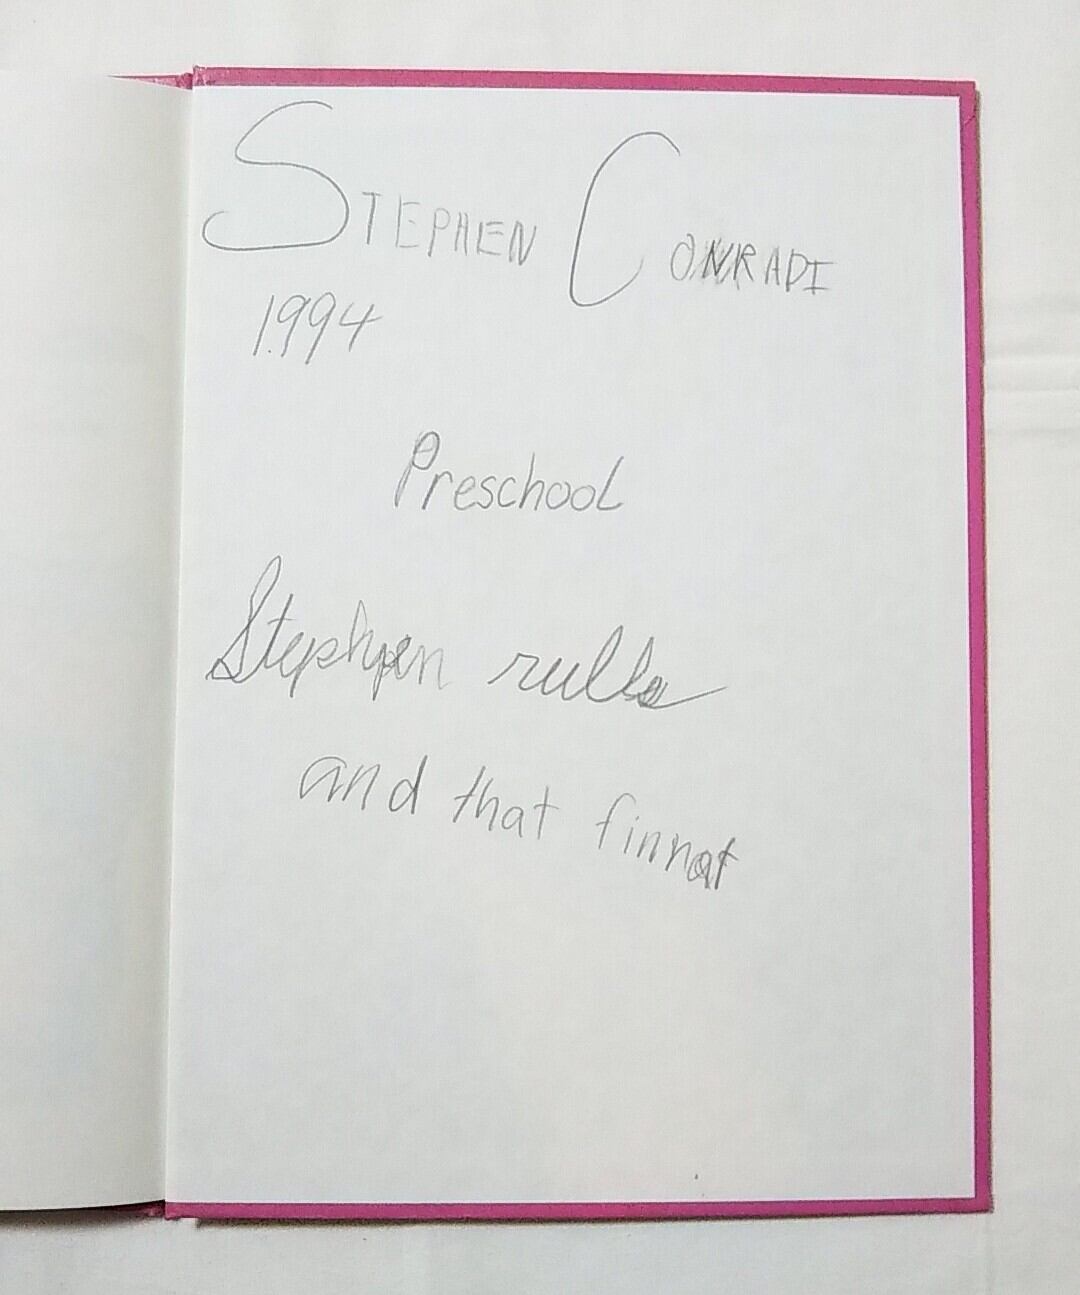 STEPHEN CONRADI
1994
Preschool
Stephen rulls
and that finnat